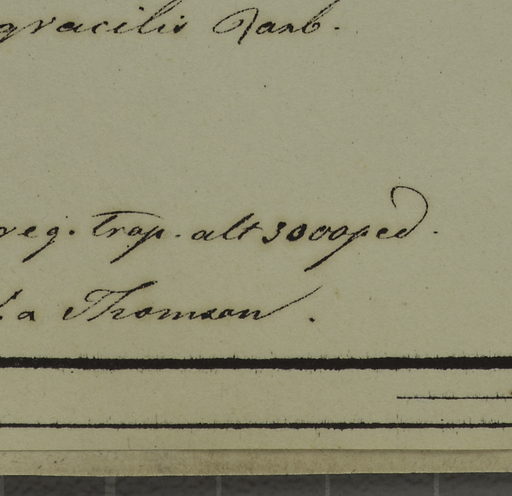 gracilis Roxb.
reg. Trop. alt 3000ped.
Thomson.